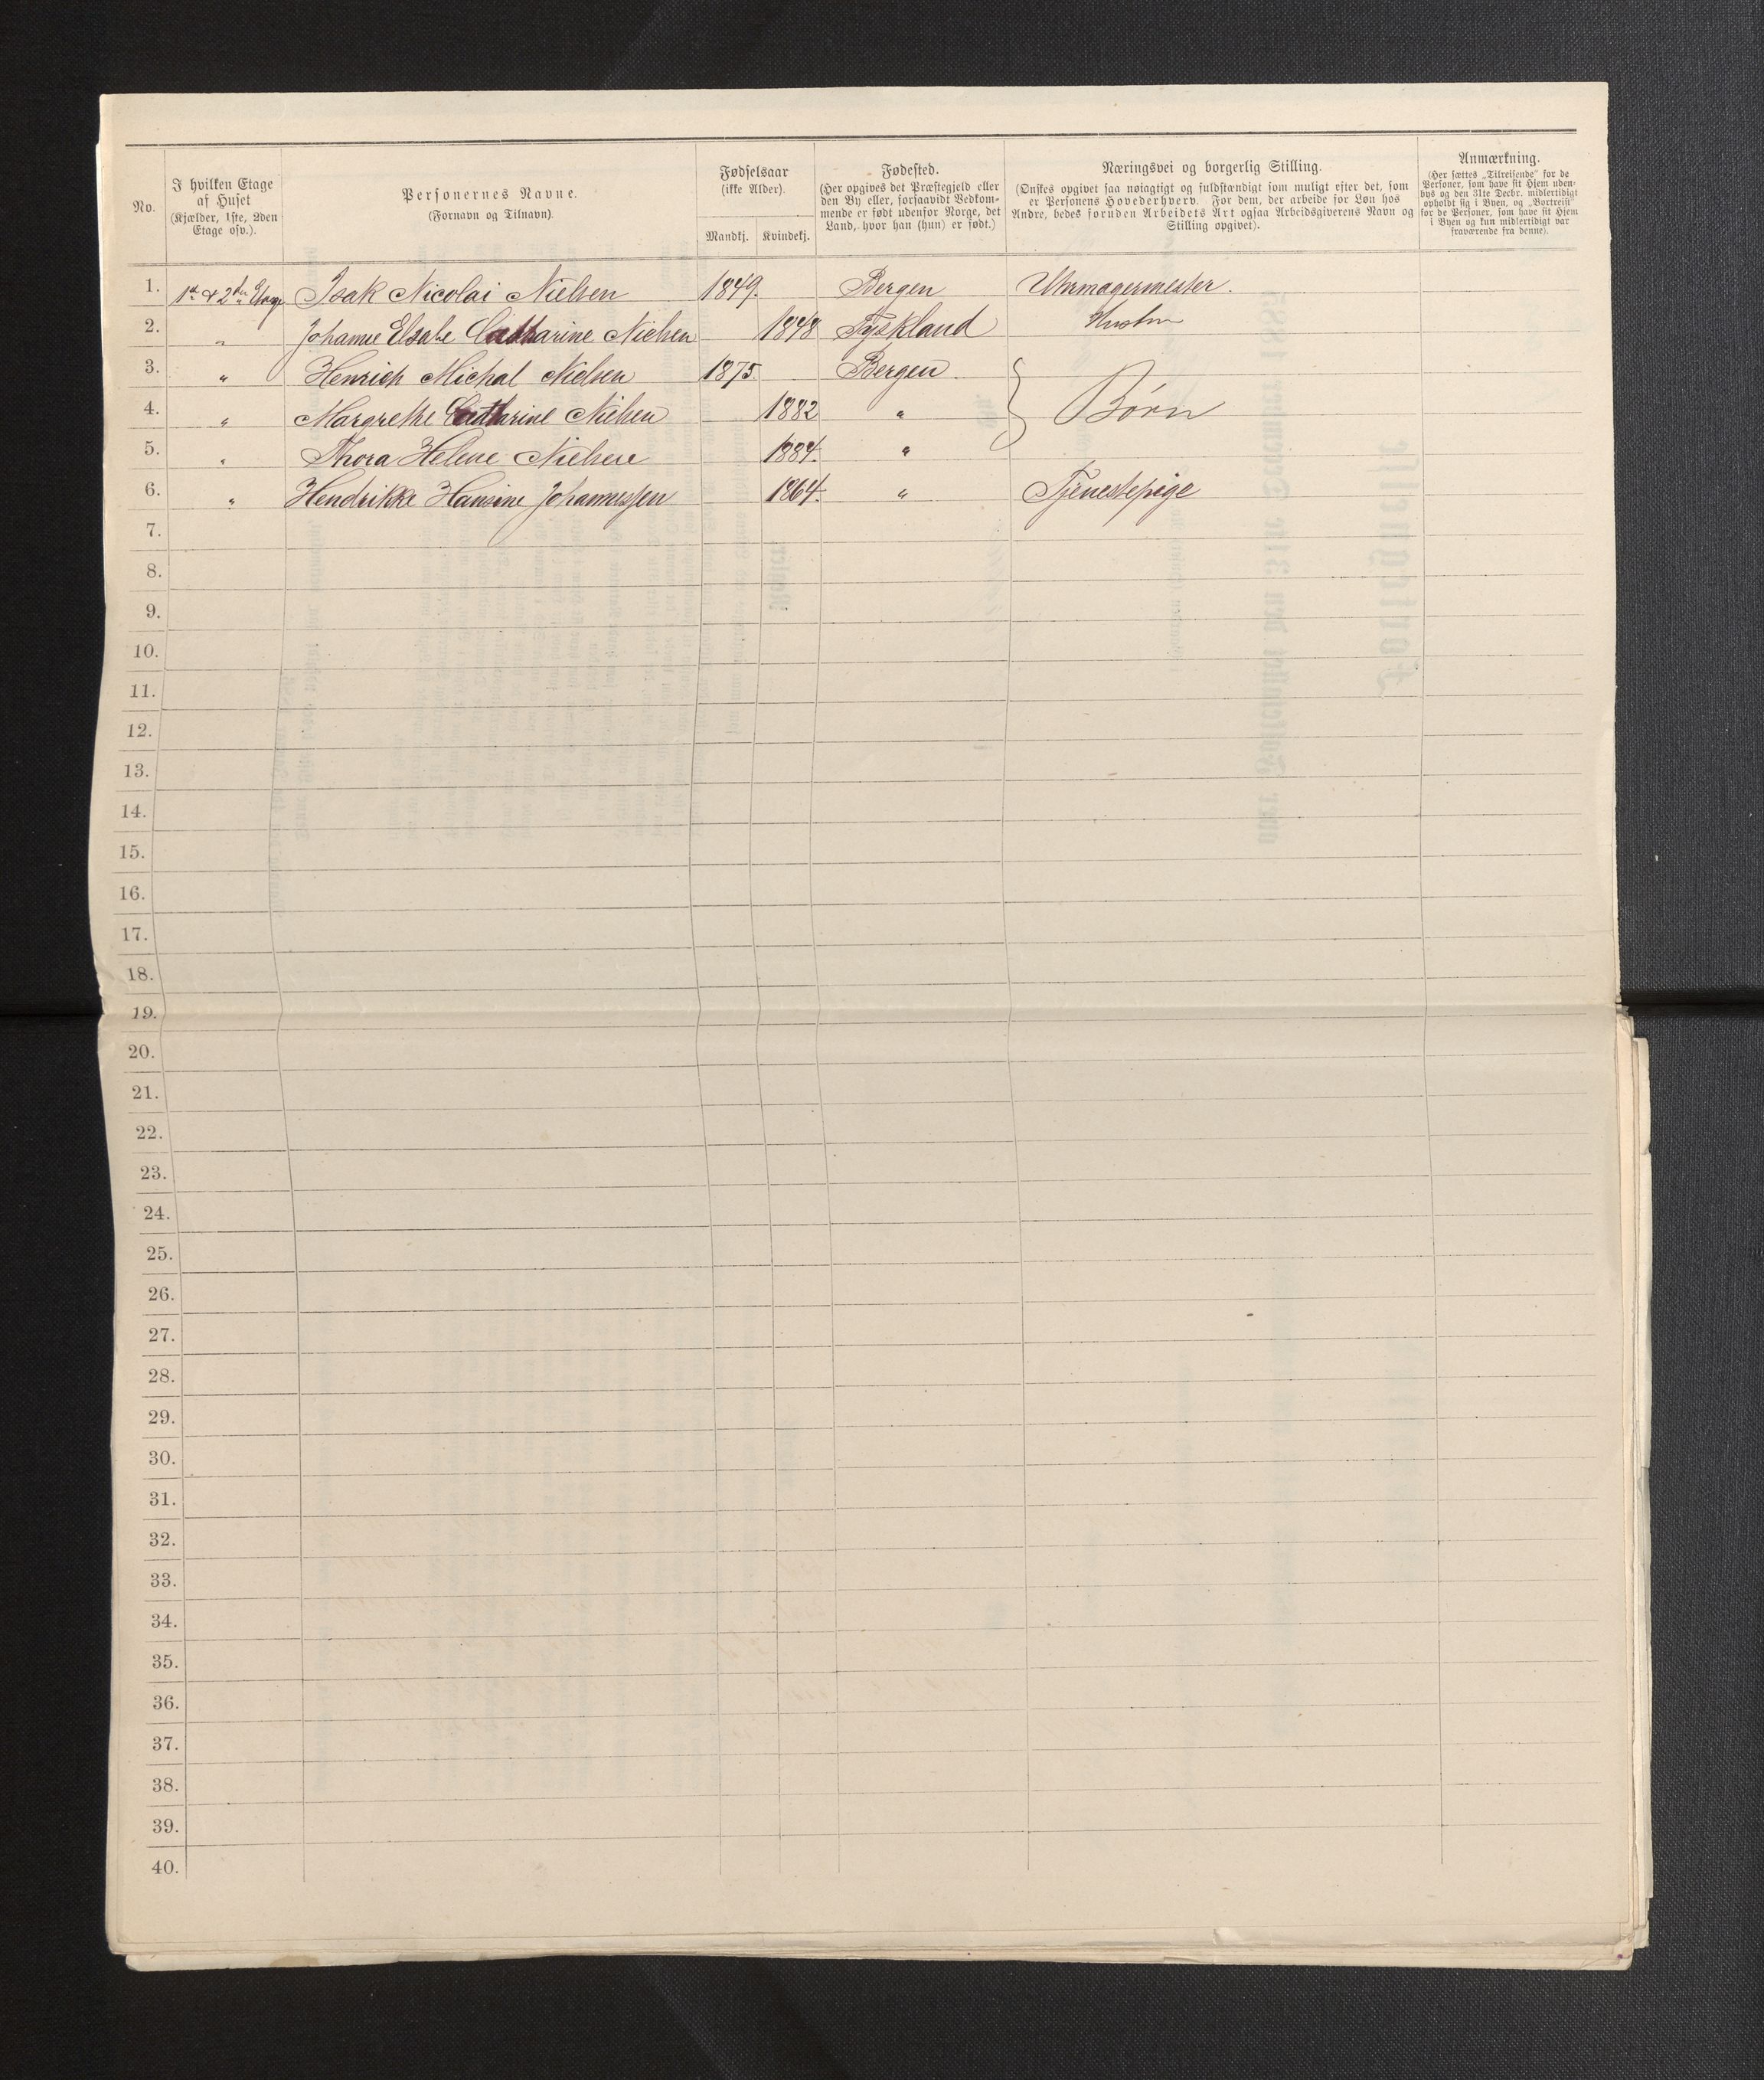 No.
I hvilken Etage
af Huset
(Kjælder, 1ste, 2den
Etage osv.).
Personernes Navne.
(Fornavn og Tilnavn).
Fødselsaar
(ikke Alder).
Mandkj. Kvindekj.
Fødested.
(Her opgives det Præstegjeld eller
den By eller, forsaavidt Vedkom-
mende er født udenfor Norge, det
Land, hvor han (hun) er født.)
Næringsvei og borgerlig Stilling.
(Ønskes opgivet saa nøiagtigt og fuldstændigt som muligt efter det, som
er Personens Hovederhverv. For dem, der arbeide for Løn hos
Andre, bedes foruden Arbeidets Art ogsaa Arbeidsgiverens Navn og
Stilling opgivet).
Anmærkning.
(Her sættes „Tilreisende" for de
Personer, som have sit Hjem uden-
bys og den 31te Decbr. midlertidigt
opholdt sig i Byen, og „Bortreist"
for de Personer, som have sit Hjem
i Byen og kun midlertidigt var
fraværende fra denne).
1. 1st & 2den Etage Isak Nicolai Nielsen 1849. Bergen Uhrmagermester.
2. " Johanne Elsabe Catharine Nielsen 1848 Tyskland Hustru
3. " Henrich Michal Nielsen 1875. Bergen.
4. " Margrethe Cathrine Nielsen 1882 " Børn
5. " Thora Helene Nielsen 1884. "
6. " Hendrikke Hansine Johannessen 1864. " Tjenestepige
7.
8.
9.
10.
11.
12.
13.
14.
15.
16.
17.
18.
19.
20.
21.
22.
23.
24.
25.
26.
27.
28.
29.
30.
31.
32.
33.
34.
35.
36.
37.
38.
39.
40.